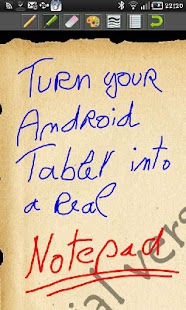 22:20
Turn your
Android
Tablet into
a Real
Notepad
ial vers